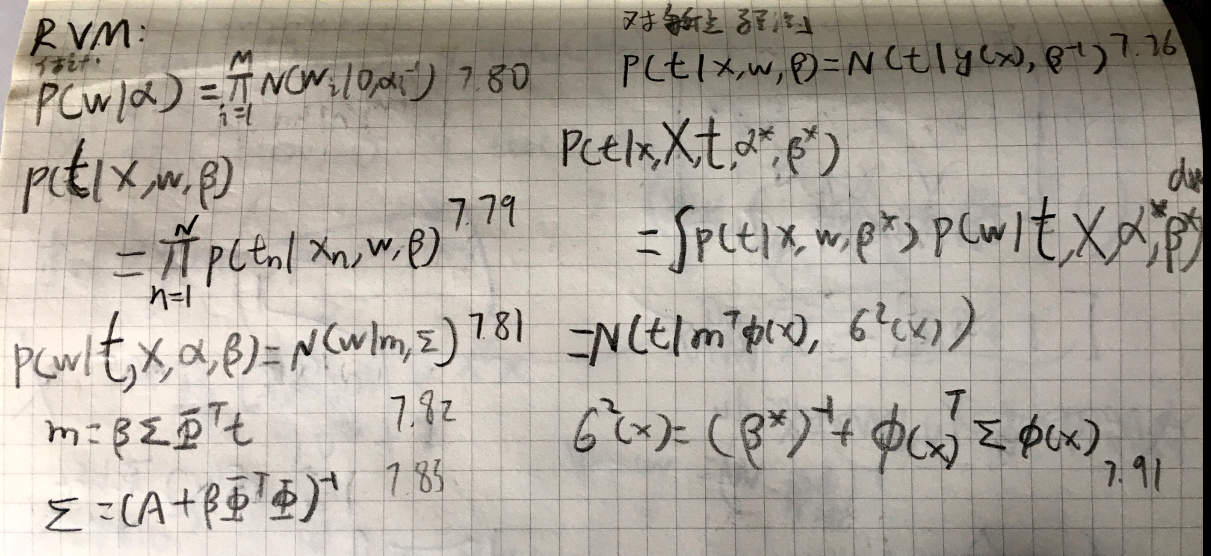 RVM:
估计:
P(w|α) = ∏_{i=1}^{M} N(w_i|0,α_i^{-1}) 7.80
p(t|X,w,β)
= ∏_{n=1}^{N} p(t_n|x_n,w,β) 7.79
p(w|t,X,α,β)=N(w|m,Σ) 7.81
m=βΣΦ^T t 7.82
Σ=(A+βΦ^TΦ)^{-1} 7.83
对
P(t|x,w,β)=N(t|y(x),β^{-1}) 7.76
P(t|x,X,t,α*,β*)
=∫p(t|x,w,β*)p(w|t,X,α*,β*) dw
=N(t|m^Tϕ(x), 6²(x))
6²(x)=(β*)^{-1}+ϕ(x)^T Σ ϕ(x) 7.91